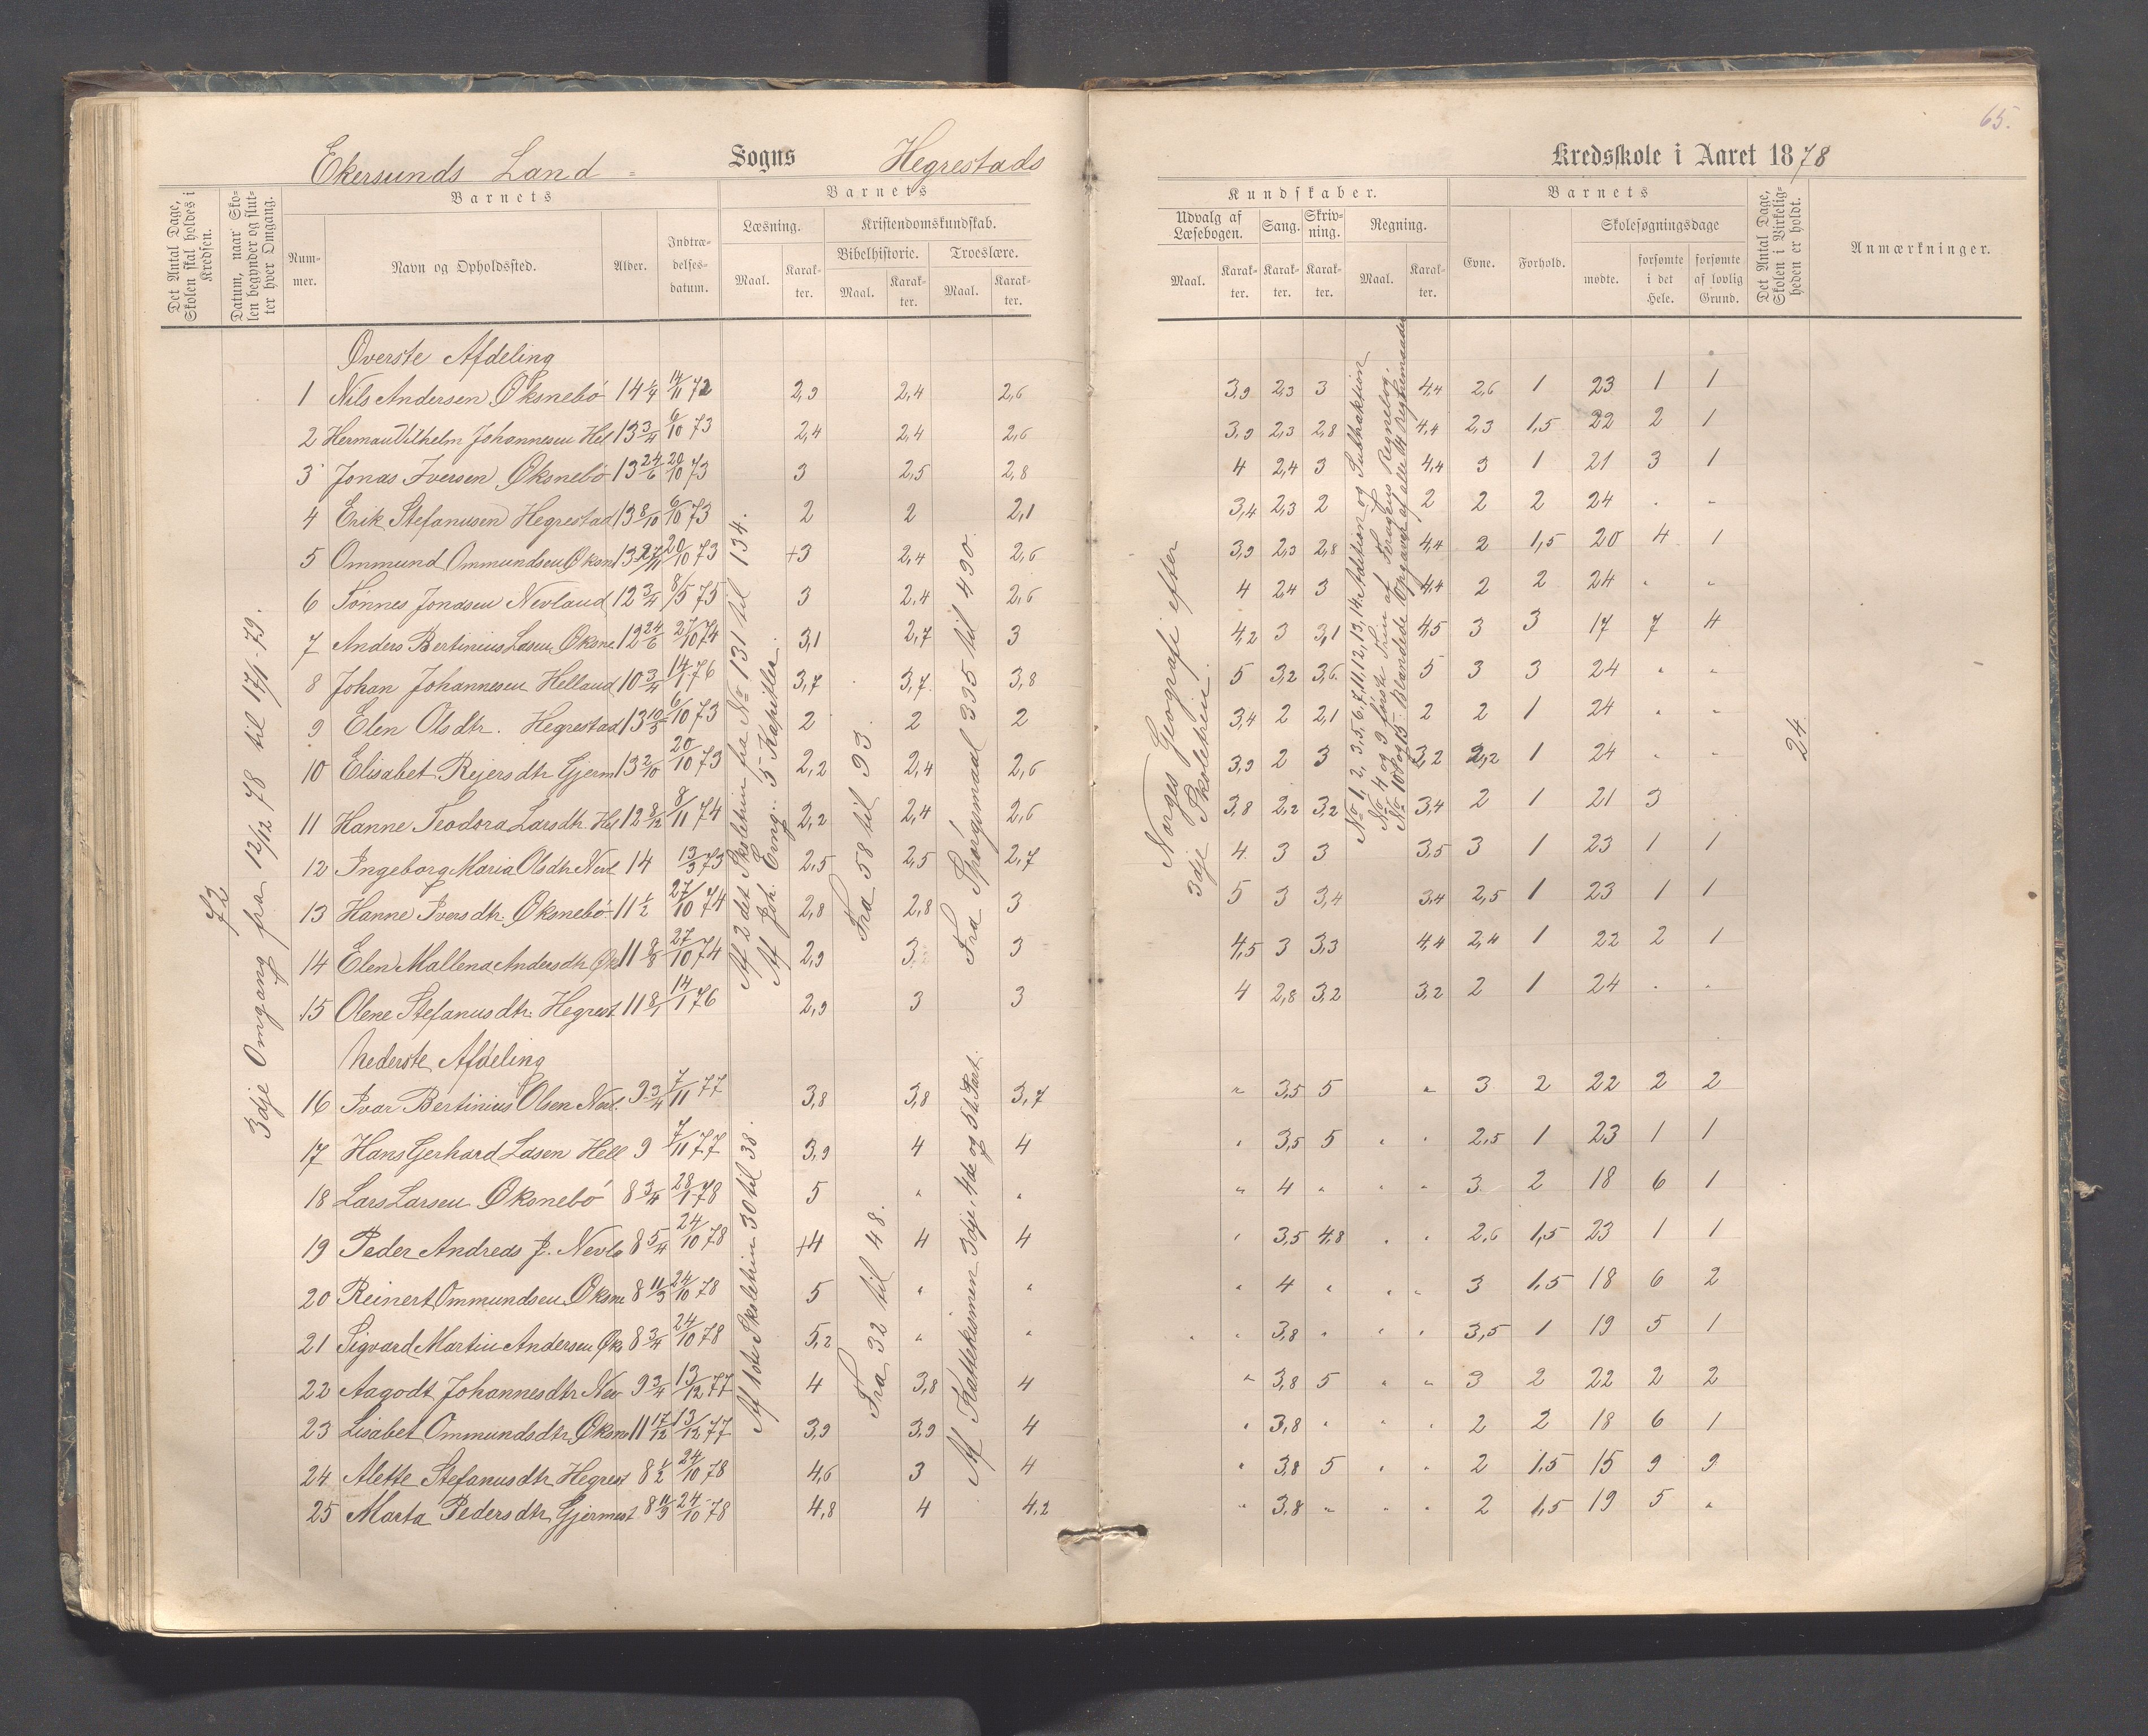 65.
Ekersunds Land= Sogns Hegrestads Kredsskole i Aaret 1878
Det Antal Dage, Skolen skal holdes i Kredsen.
Datum, naar Skolen begynder og slutter hver Omgang.
Barnets
Nummer.
Navn og Opholdssted.
Alder.
Indtrædelsesdatum.
Barnets
Læsning.
Maal. Karakter.
Kristendomskundskab.
Bibelhistorie. Troeslære.
Maal. Karakter. Maal. Karakter.
Kundskaber.
Udvalg af Læsebogen. Sang. Skrivning. Regning.
Maal. Karakter. Karakter. Karakter. Maal. Karakter.
Barnets
Evne. Forhold.
Skolesøgningsdage
mødte. forsømte i det Hele. forsømte af lovlig Grund.
Det Antal Dage, Skolen i Virkeligheden er holdt.
Anmærkninger.
72
3dje Omgang fra 12/12 78 til 17/1-79.
Øverste Afdeling
1 Nils Andersen Øksnebö 14 1/4 14/11 72 2,9 2,4 2,6 3,9 2,3 3 4,4 2,6 1 23 1 1
2 Herman Vilhelm Johannesen Hel 13 3/4 6/10 73 2,4 2,4 2,6 3,9 2,3 2,8 4,4 2,3 1,5 22 2 1
3 Jonas Iversen Øksnebö 13 24/6 20/10 73 3 2,5 2,8 4 2,4 3 4,4 3 1 21 3 1
4 Erik Stefanusen Hegrestad 13 8/10 6/10 73 2 2 2,1 3,4 2,3 2 2 2 2 24 . "
5 Ommund Ommundsen Øksn 13 27/11 20/10 73 +3 2,4 2,6 3,9 2,3 2,8 4,4 2 1,5 20 4 1
6 Tönnes Jonasen Nevland 12 3/4 8/5 75 3 2,4 2,6 4 2,4 3 4,4 2 2 24 " "
7 Anders Bertinius Lasen Øksne 12 24/6 27/10 74 3,1 2,7 3 4,2 3 3,1 4,5 3 3 17 7 4
8 Johan Johannesen Helland 10 3/4 14/1 76 3,7 3,7 3,8 5 3,2 3,6 5 3 3 24 " "
9 Elen Olsdtr. Hegrestad 13 10/3 6/10 73 2 2 2 3,4 2 2,1 2 2 1 24 " "
10 Elisabet Rejersdtr Gjerm 13 2/10 20/10 73 2,2 2,4 2,6 3,9 2 3 3,2 2,2 1 24 " "
11 Hanne Teodora Larsdtr. Hel 12 8/12 8/11 74 2,2 2,4 2,6 3,8 2,2 3,2 3,4 2 1 21 3
12 Ingeborg Maria Olsdtr Nevl 14 19/3 73 2,5 2,5 2,7 4 3 3 3,5 3 1 23 1 1
13 Hanne Iversdtr. Øksnebö 11 1/2 27/10 74 2,8 2,8 3 5 3 3,4 3,4 2,5 1 23 1 1
14 Elen Mallena Andersdtr Øks 11 8/8 27/10 74 2,9 3 3 4,5 3 3,3 4,4 2,4 1 22 2 1
15 Olene Stefanusdtr. Hegrest 11 8/1 14/1 76 2,9 3 3 4 2,8 3,2 3,2 2 1 24 " "
Af 2det Skoletrin fra No 131 til 134.
Af Joh. Evng.: 5 Kapitler.
Fra 58 til 93
Fra Spörgsmaal 335 til 490.
Norges Geografi efter
3dje Skoletrin.
No 1, 2, 3, 5, 6, 7, 11, 12, 13, 14. Adition og Subthaktion
No 4 og 9 förste Trin af Feragens Regnebog.
No 10 og 15. Blandede Opgaver af alle 4 regnemaader
24
Nederste Afdeling
16 Ivar Bertinius Olsen Nevl. 9 3/4 7/11 77 3,8 3,8 3,7 " 3,5 5 " 3 2 22 2 2
17 Hans Gerhard Lasen Hell 9 7/11 77 3,9 4 4 " 3,5 5 " " 2,5 1 23 1 1
18 Lars Larsen Øksnebö 8 3/4 28/1 78 5 " " " 4 " " " 3 2 18 6 1
19 Peder Andreas J. Nevla 8 5/4 24/10 78 +4 4 4 " 3,5 4,8 " " 2,6 1,5 23 1 1
20 Reinert Ommundsen Øksne 8 11/3 24/10 78 5 " " " 4 " " " 3 1,5 18 6 2
21 Sigvard Martin Andersen Øks 8 3/4 24/10 78 5,2 " " " " 3,8 " " " 3,5 1 19 5 1
22 Aagodt Johannesdtr Nev 9 3/4 13/12 77 4 3,8 4 " 3,8 5 " " 3 2 22 2 2
23 Lisabet Ommundsdtr Øksn 11 17/12 13/12 77 3,9 3,9 4 " 3,8 " " " 2 2 18 6 1
24 Alette Stefanusdtr Hegrest 8 1/2 24/10 78 4,6 3 4 " 3,8 5 " " 2 1,5 15 9 9
25 Marta Pedersdtr Gjermest 8 11/9 24/10 78 4,8 4 4,2 " 3,8 " " " 2 1,5 19 5 "
Af 1ste Skoletrin 30 til 38.
Fra 32 til 48.
Af Kattekismen 3dje, 4de og 5te Part.